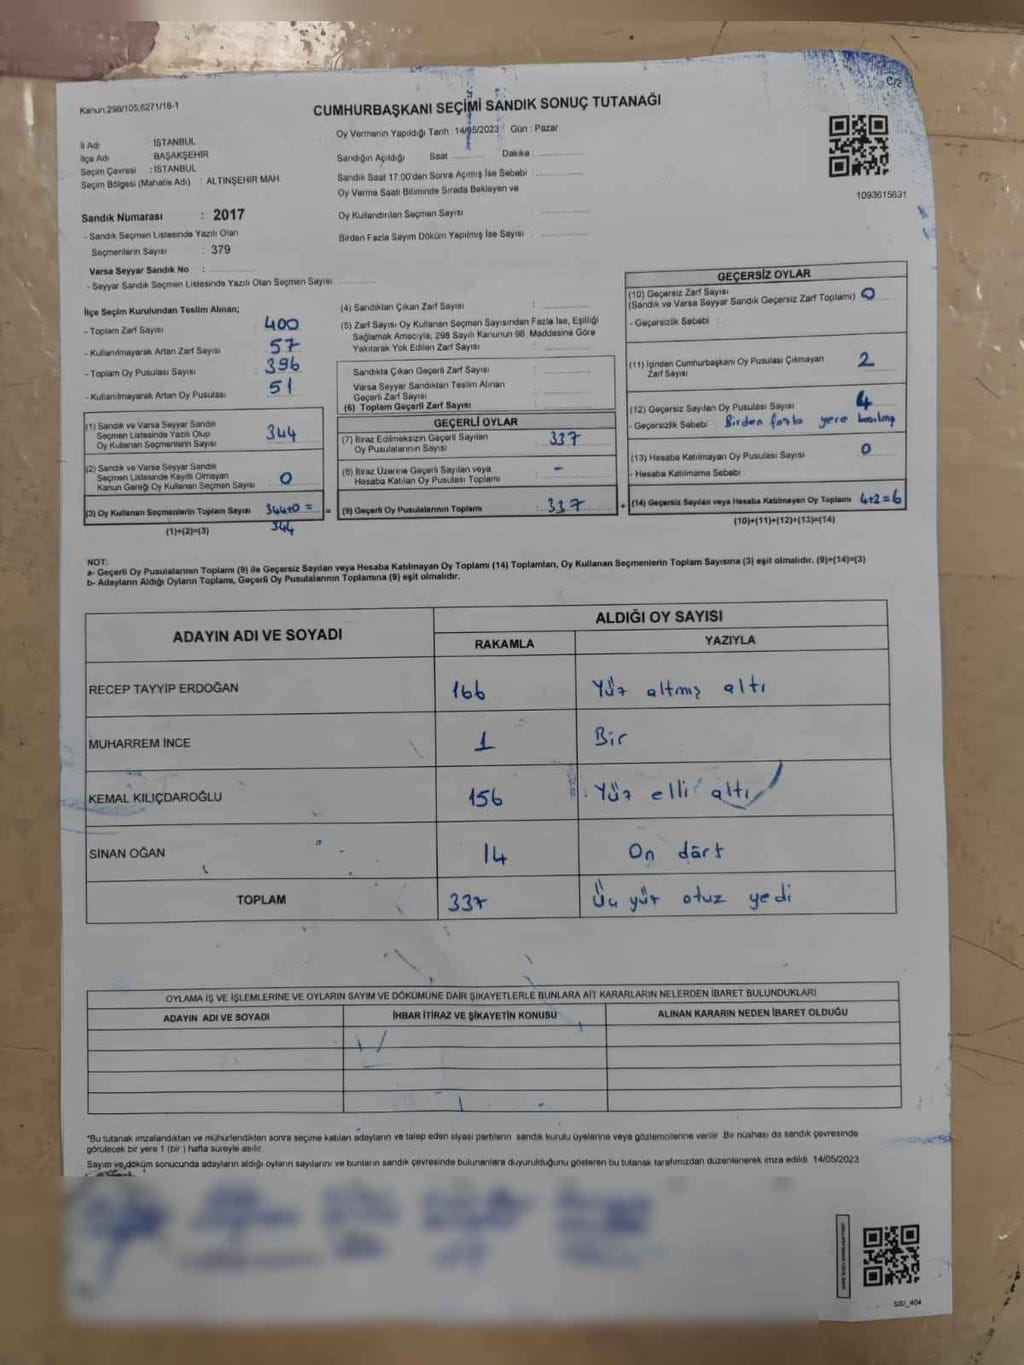 Kanun:298/105,6271/18-1
C/2
CUMHURBAŞKANI SEÇİMİ SANDIK SONUÇ TUTANAĞI
İl Adı İSTANBUL
İlçe Adı BAŞAKŞEHİR
Seçim Çevresi : İSTANBUL
Seçim Bölgesi (Mahalle Adı) : ALTINŞEHİR MAH
Oy Vermenin Yapıldığı Tarih : 14/05/2023 Gün : Pazar
Sandığın Açıldığı Saat Dakika :
Sandık Saat 17:00'den Sonra Açımış İse Sebebi :
Oy Verme Saati Bitiminde Sırada Bekleyen ve
Oy Kullandırılan Seçmen Sayısı :
Birden Fazla Sayım Döküm Yapılmış İse Sayısı :
1093615631
Sandık Numarası : 2017
- Sandık Seçmen Listesinde Yazılı Olan
Seçmenlerin Sayısı : 379
Varsa Seyyar Sandık No :
- Seyyar Sandık Seçmen Listesinde Yazılı Olan Seçmen Sayısı
İlçe Seçim Kurulundan Teslim Alınan;
- Toplam Zarf Sayısı 400
- Kullanılmayarak Artan Zarf Sayısı 57
- Toplam Oy Pusulası Sayısı 396
- Kullanılmayarak Artan Oy Pusulası 51
(1) Sandık ve Varsa Seyyar Sandık
Seçmen Listesinde Yazılı Olup
Oy Kullanan Seçmenlerin Sayısı 344
(2) Sandık ve Varsa Seyyar Sandık
Seçmen Listesinde Kayıtlı Olmayan
Kanun Gereği Oy Kullanan Seçmen Sayısı 0
(3) Oy Kullanan Seçmenlerin Toplam Sayısı 344+0 =
344
(1)+(2)=(3)
(4) Sandıktan Çıkan Zarf Sayısı :
(5) Zarf Sayısı Oy Kullanan Seçmen Sayısından Fazla İse, Eşitliği
Sağlamak Amacıyla; 298 Sayılı Kanunun 98. Maddesine Göre
Yakılarak Yok Edilen Zarf Sayısı :
Sandıkta Çıkan Geçerli Zarf Sayısı :
Varsa Seyyar Sandıktan Teslim Alınan
Geçerli Zarf Sayısı :
(6) Toplam Geçerli Zarf Sayısı :
GEÇERLİ OYLAR
(7) İtiraz Edilmeksizin Geçerli Sayılan
Oy Pusulalarının Sayısı 337
(8) İtiraz Üzerine Geçerli Sayılan veya
Hesaba Katılan Oy Pusulası Toplamı -
= (9) Geçerli Oy Pusulalarının Toplamı : 337
GEÇERSİZ OYLAR
(10) Geçersiz Zarf Sayısı
(Sandık ve Varsa Seyyar Sandık Geçersiz Zarf Toplamı) 0
- Geçersizlik Sebebi :
(11) İçinden Cumhurbaşkanı Oy Pusulası Çıkmayan
Zarf Sayısı 2
(12) Geçersiz Sayılan Oy Pusulası Sayısı 4
- Geçersizlik Sebebi : Birden fazla yere basılmış
(13) Hesaba Katılmayan Oy Pusulası Sayısı 0
- Hesaba Katılmama Sebebi
+ (14) Geçersiz Sayılan veya Hesaba Katılmayan Oy Toplamı 4+2=6
(10)+(11)+(12)+(13)=(14)
NOT:
a- Geçerli Oy Pusulalarının Toplamı (9) ile Geçersiz Sayılan veya Hesaba Katılmayan Oy Toplamı (14) Toplamları, Oy Kullanan Seçmenlerin Toplam Sayısına (3) eşit olmalıdır. (9)+(14)=(3)
b- Adayların Aldığı Oyların Toplamı, Geçerli Oy Pusulalarının Toplamına (9) eşit olmalıdır.
ADAYIN ADI VE SOYADI ALDIĞI OY SAYISI
RAKAMLA YAZIYLA
RECEP TAYYİP ERDOĞAN 166 Yüz altmış altı
MUHARREM İNCE 1 Bir
KEMAL KILIÇDAROĞLU 156 Yüz elli altı
SİNAN OĞAN 14 On dört
TOPLAM 337 Üç yüz otuz yedi
OYLAMA İŞ VE İŞLEMLERİNE VE OYLARIN SAYIM VE DÖKÜMÜNE DAİR ŞİKAYETLERLE BUNLARA AİT KARARLARIN NELERDEN İBARET BULUNDUKLARI
ADAYIN ADI VE SOYADI İHBAR İTİRAZ VE ŞİKAYETİN KONUSU ALINAN KARARIN NEDEN İBARET OLDUĞU
*Bu tutanak imzalandıktan ve mühürlendikten sonra seçime katılan adayların ve talep eden siyasi partilerin sandık kurulu üyelerine veya gözlemcilerine verilir. Bir nüshası da sandık çevresinde
görülecek bir yere 1 (bir) hafta süreyle asılır.
Sayım ve döküm sonucunda adayların aldığı oyların sayılarını ve bunların sandık çevresinde bulunanlara duyurulduğunu gösteren bu tutanak tarafımızdan düzenlenerek imza edildi. 14/05/2023
SSI_404